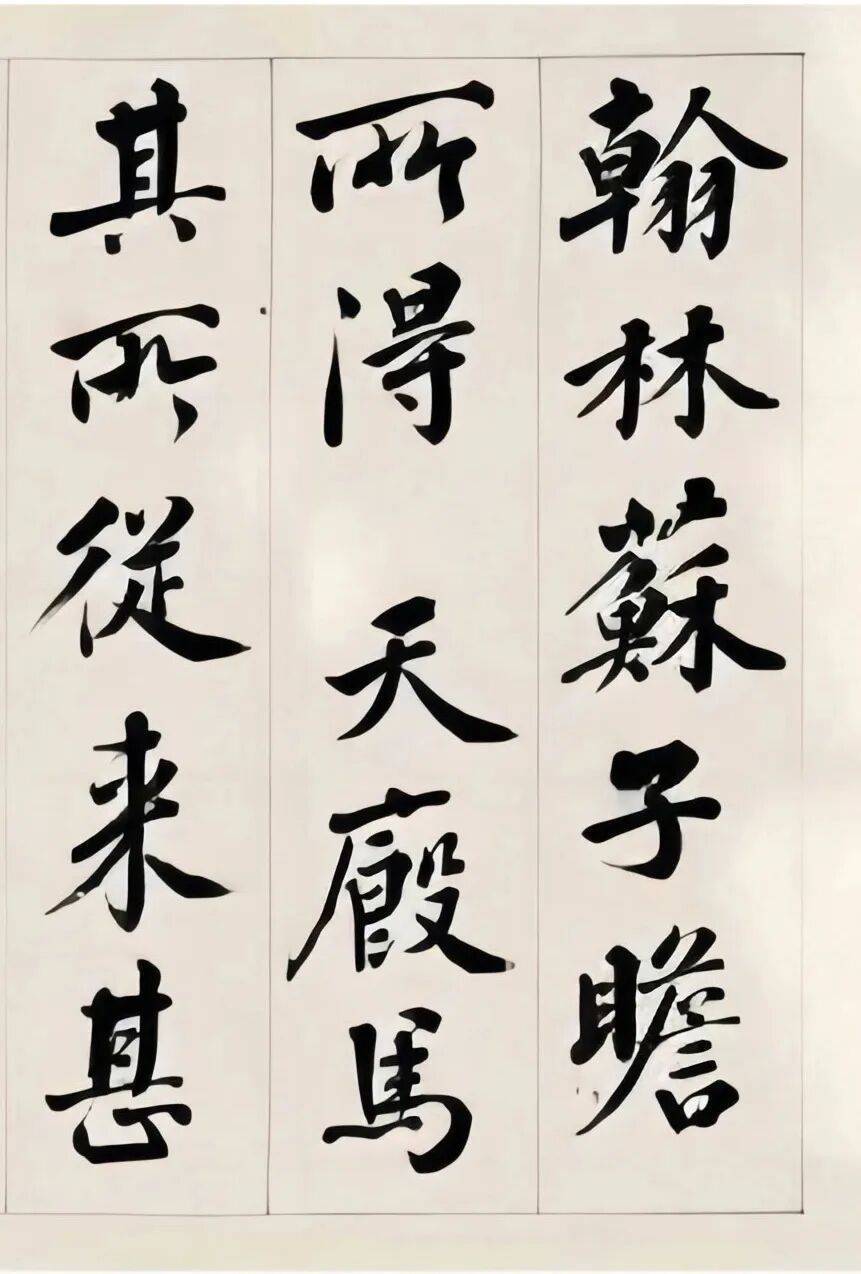 翰林蘇子瞻
所得 天廄馬
其所從来甚